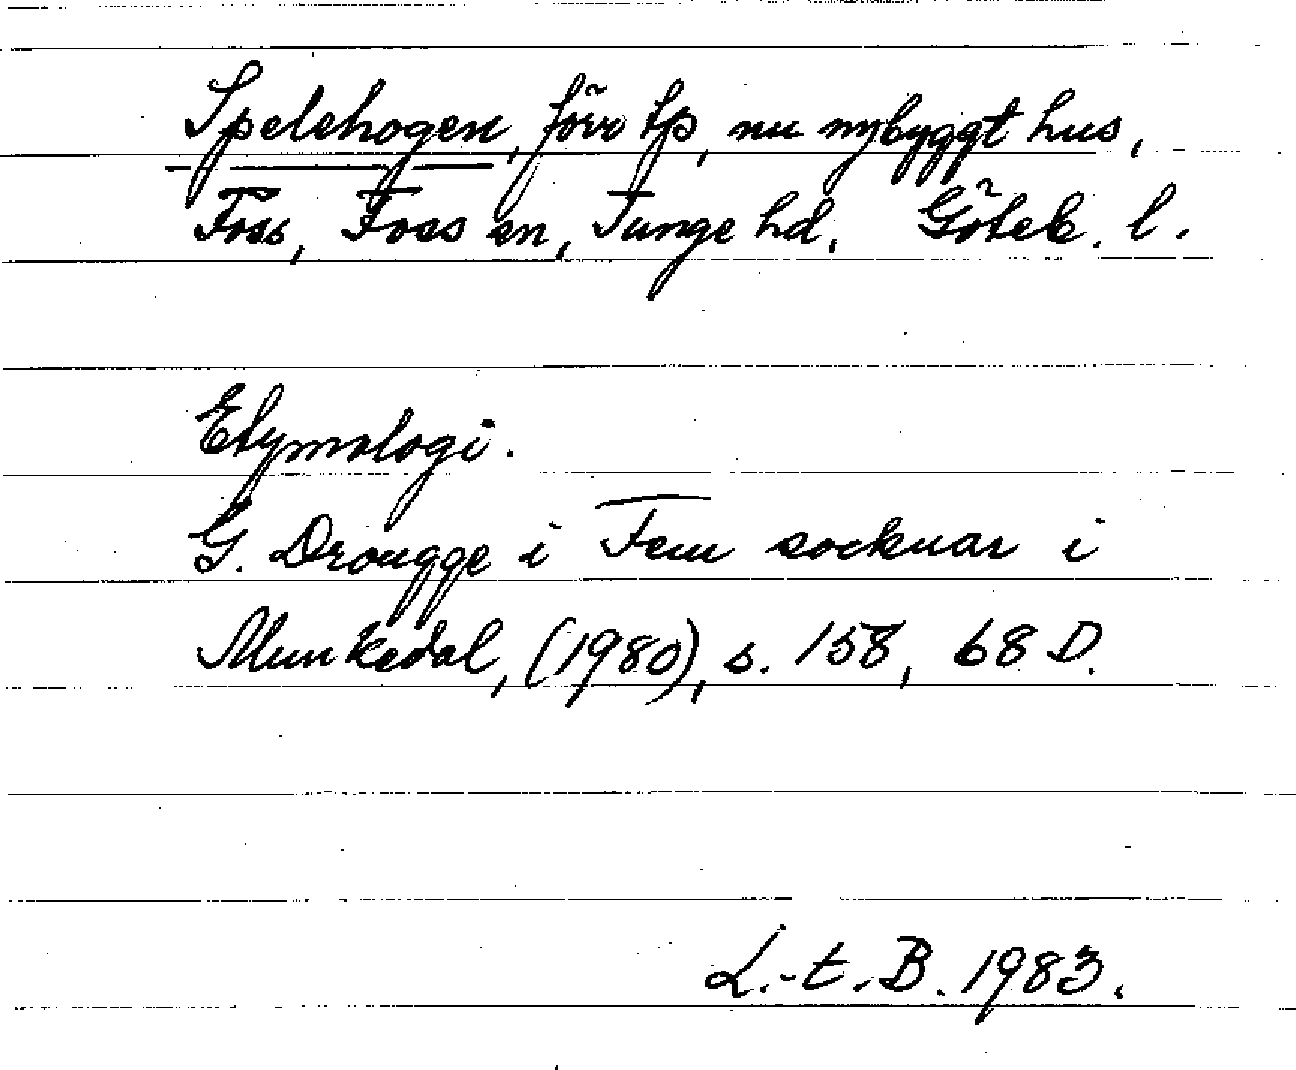 Spelehogen, förr tp, nu nybyggt hus,
Foss, Foss sn, Tunge hd, Göteb. l.
Etymologi.
G. Drougge i Fem socknar i
Munkedal, (1980), s. 158, 68 D.
L.-t.-B. 1983.